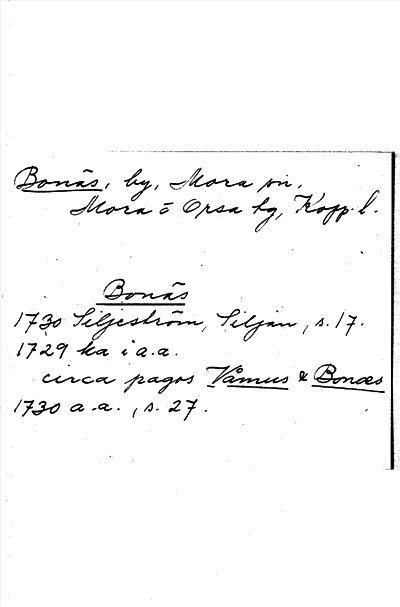 Bonäs, by, Mora sn,
Mora o Orsa tg, Kopp. l.
Bonäs
1730 Siljeström, Siljan, s. 17.
1729 ka i a.a.
circa pagos Vamus & Bonæs
1730 a.a., s. 27.